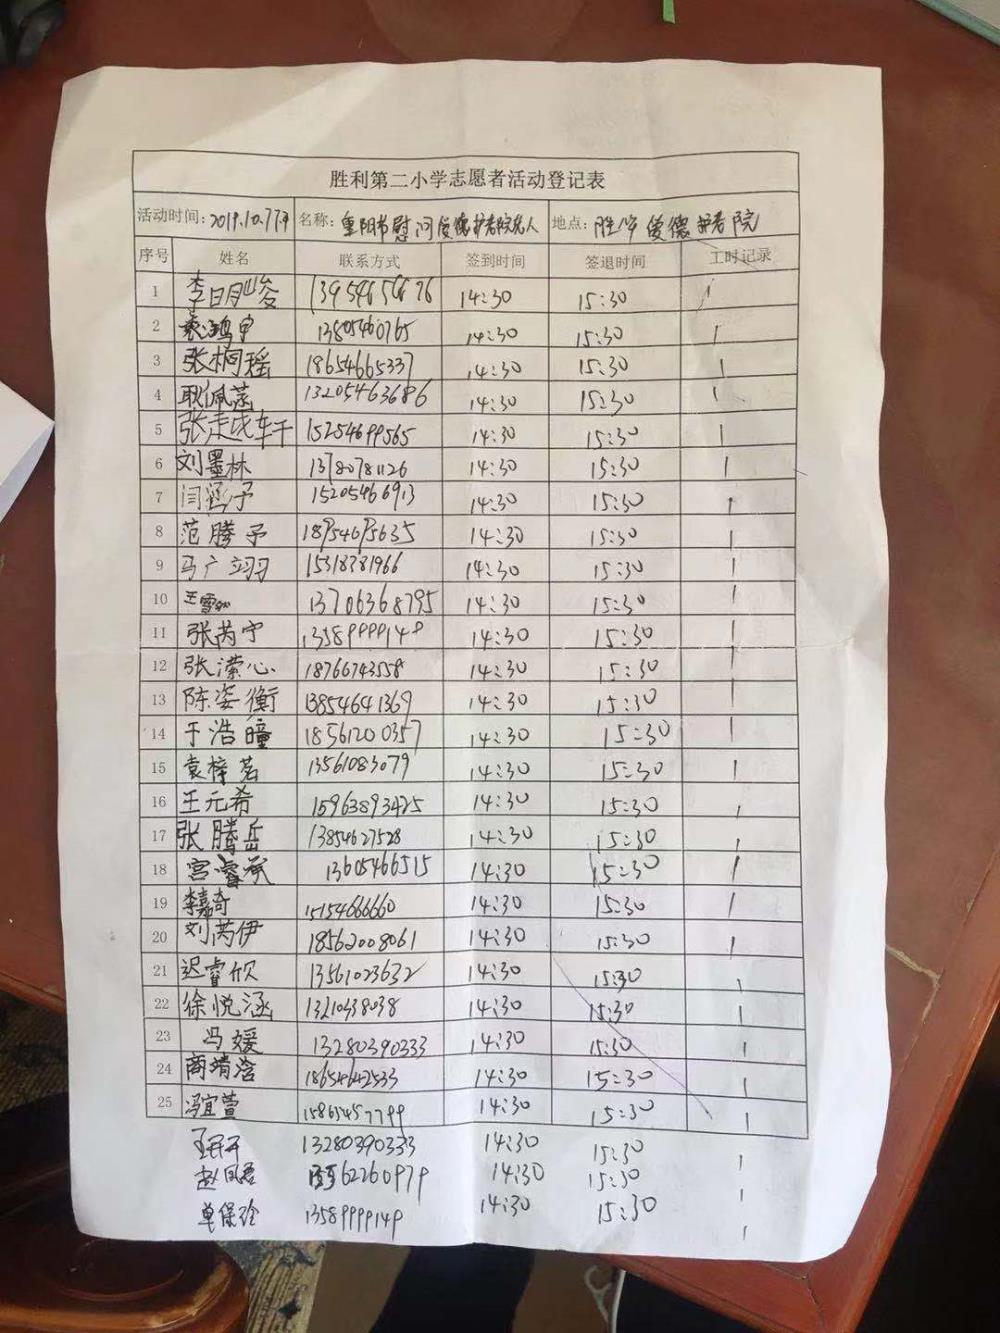 胜利第二小学志愿者活动登记表
活动时间: 2019.10.7 名称: 重阳节慰问俊德护老院老人 地点: 胜华俊德护老院
序号 姓名 联系方式 签到时间 签退时间 工时记录
1 李明峻 13954656676 14:30 15:30 1
2 袁鸿宇 13805460765 14:30 15:30 1
3 张桐瑶 18654665337 14:30 15:30 1
4 耿佩菡 13205463686 14:30 15:30 1
5 张 15254699565 14:30 15:30 1
6 刘墨林 13780781126 14:30 15:30 1
7 闫涵予 15205466913 14:30 15:30 1
8 范腾予 18954695635 14:30 15:30 1
9 马广翊 15318381966 14:30 15:30 1
10 王雪 13706368795 14:30 15:30 1
11 张芮宁 13589999149 14:30 15:30 1
12 张潆心 18766743558 14:30 15:30 1
13 陈姿衡 13854641369 14:30 15:30 1
14 于浩瞳 18561200357 14:30 15:30 1
15 袁梓茗 13561083079 14:30 15:30 1
16 王元希 15963893425 14:30 15:30 1
17 张腾岳 13854627528 14:30 15:30 1
18 宫睿承 13605466515 14:30 15:30 1
19 李嘉奇 15154666660 14:30 15:30 1
20 刘芮伊 18562008061 14:30 15:30 1
21 迟睿欣 13561023632 14:30 15:30 1
22 徐悦涵 13210338038 14:30 15:30 1
23 冯媛 13280390333 14:30 15:30 1
24 商靖涵 18654642533 14:30 15:30 1
25 冯宜萱 15865457799 14:30 15:30 1
13280390333 14:30 15:30 1
赵凤君 62260979 14:30 15:30 1
单保玲 13589999149 14:30 15:30 1